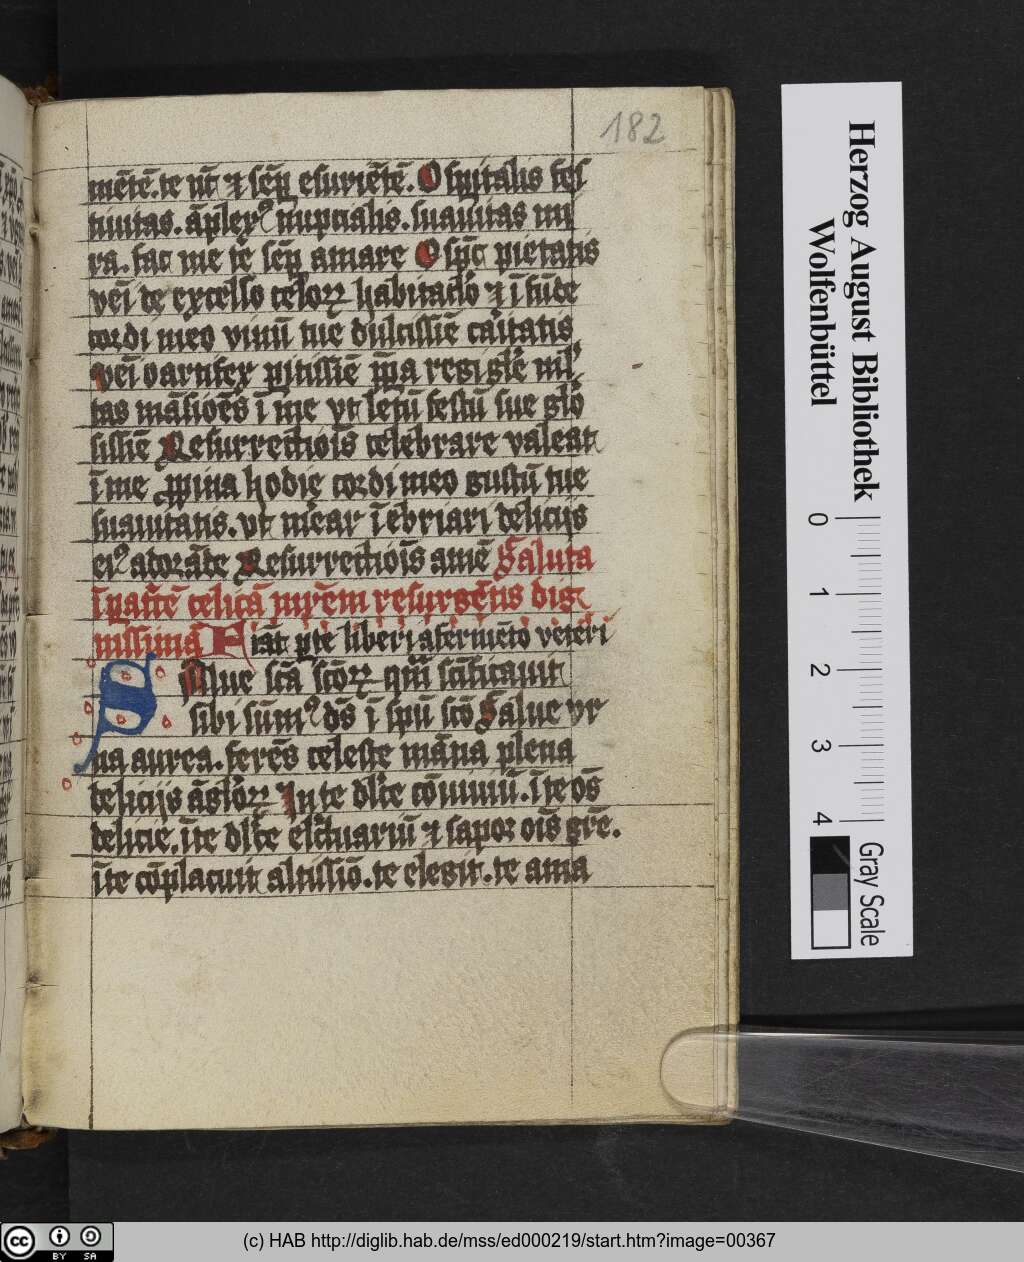 182
mētē. te ut̄ ⁊ sēꝑ esuriētē. O spiritalis fes
tiuitas. āplex⁹ nupcialis. suauitas mi
ra. fac me te sēꝑ amare O spc̄ pietatis
vēi de excelso celoꝝ habitaclo ⁊ ī fūde
cordi meo vinū tue dulcissīē caritatis
vēi o artifex
tas māsiōēs ī me vt letū festū tue glo
sissīē Resurrectiois celebrare valeat
ī me ꝓpina hodie cordi meo gustū tue
suauitatis. vt mear īebriari delicijs
ei⁹ adorāde Resurrectiois amē Saluta
celicā mr̄em resurgētis dig
nissima Fiāt pte liberi a fermēto veteri
Salue sc̄a sc̄oꝝ qm̄ sc̄ificauit
sibi sūm⁹ ds̄ ī spū sc̄o Salue vr
na aurea. ferēs celeste māna plena
delicijs āgloꝝ In te dl̄ce cōuiuiū. ī te os̄
delicie. ī te dl̄ce elc̄tuariū ⁊ sapor ois gr̄e.
ī te cōplacuit altissīo. te elegit. te ama
Herzog August Bibliothek
Wolfenbüttel
0 1 2 3 4
Gray Scale
cc BY SA
(c) HAB http://diglib.hab.de/mss/ed000219/start.htm?image=00367